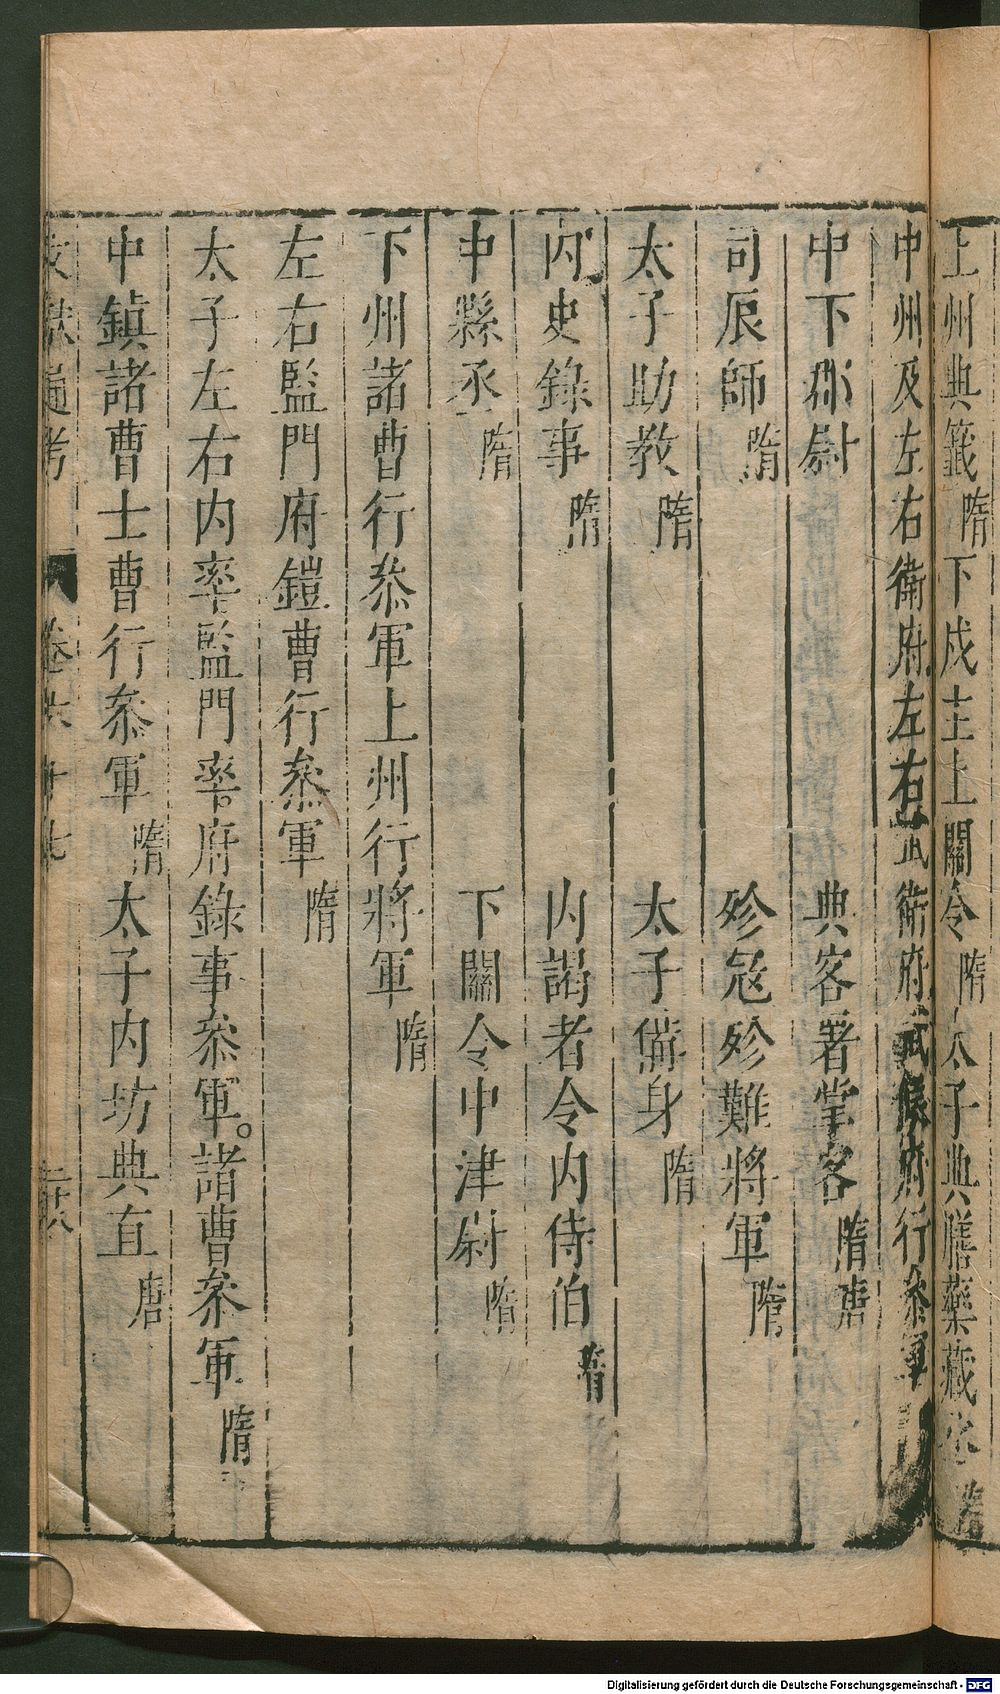 上州典籤隋下戍主上關令隋太子典膳藥藏丞隋
中州及左右衛府左右武衛府武候府行叅軍
中下郡尉 典客署掌客隋唐
司辰師隋 殄寇殄難將軍隋
太子助教隋 太子備身隋
内史錄事隋 内謁者令内侍伯隋
中縣丞隋 下關令中津尉隋
下州諸曹行叅軍上州行將軍隋
左右監門府鎧曹行叅軍隋
太子左右内率監門率府錄事叅軍。諸曹叅軍隋
中鎮諸曹士曹行叅軍隋太子内坊典直唐
文獻通考 卷六十七 二十八
Digitalisierung gefördert durch die Deutsche Forschungsgemeinschaft - DFG